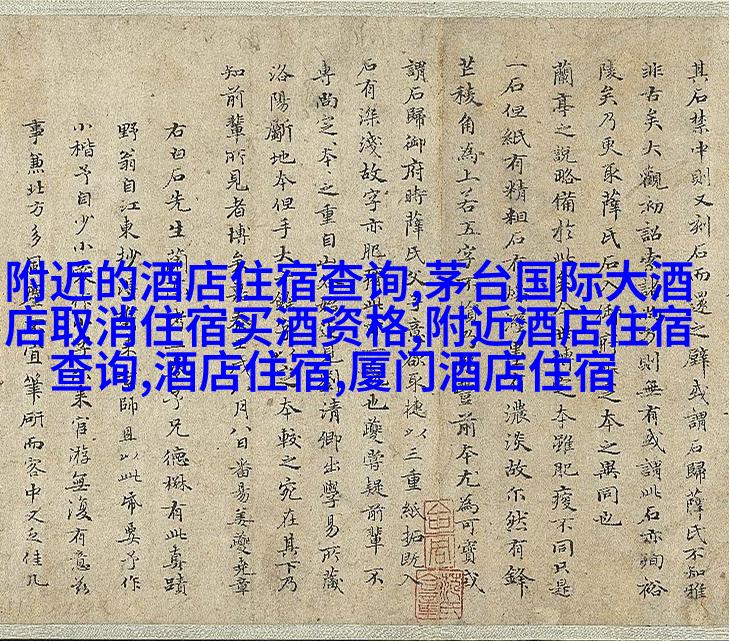 附近的酒店住宿查询,茅台国际大酒
店取消住宿买酒资格,附近酒店住宿
查询,酒店住宿,厦门酒店住宿
其石禁中則又刻石而還之壁或謂石歸薛氏不知雅
非古矣大觀初詔索則無有或謂此石亦殉裕
陵矣乃更取薛氏石入御府本之異同也
蘭亭之說略備於此本雖肥瘦不同只是
一石但紙有精粗石有濃淡故尒然有鋒
芒稜角為上若五字不前本尤為可寶或
謂石歸御府時薛氏父子捷以三重紙拓既入
石有深淺故字亦肥也夔嘗疑前輩不
專尚定本本之重自山清卿出學易所蔵
洛陽斸地本但手大之本較之宛在其下乃
知前輩所見者博矣月八日番易姜夔堯章
右白石先生蘭予兄德楙有此真蹟
野翁自江東抄師且以此帋要予作
小楷予自少小来官游無復有意茲
事兼北方多風宜筆研而客中又乏佳几